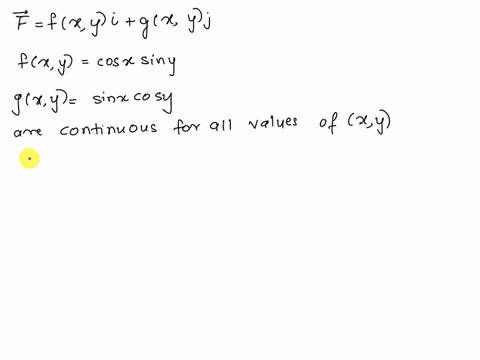 F⃗ = f(x, y) i + g(x, y) j
f(x, y) = cosx siny
g(x, y) = sinx cosy
are continuous for all values of (x, y)